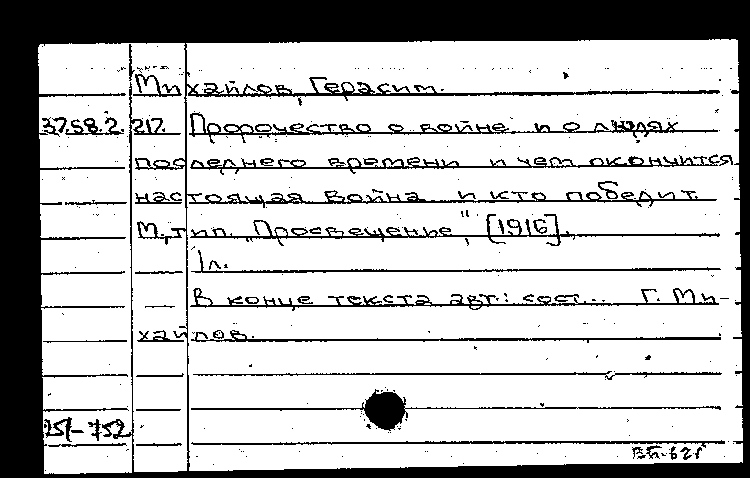 Михайлов, Герасим.
37.58.2.217. Пророчество о войне и о людях
последнего времени и чем окончится
настоящая война и кто победит.
М., тип. "Просвещенье", [1916].
1л.
В конце текста авт.: сост... Г. Ми-
хайлов.
251-752